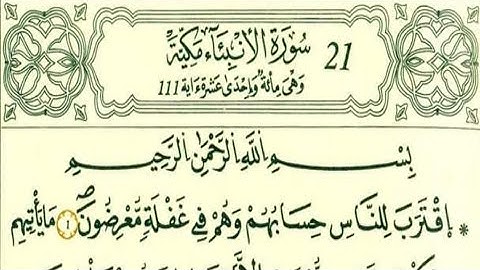 سُورَةُ الْأَنْبِيَاءِ مَكِّيَّةٌ 21
وَهْيَ مِائَةٌ وَإِحْدَىٰ عَشْرَةَ ءَايَة 111
بِسْمِ اللَّهِ الرَّحْمَٰنِ الرَّحِيمِ
اِ۪قْتَرَبَ لِلنَّاسِ حِسَابُهُمْ وَهُمْ فِي غَفْلَةٍ مُّعْرِضُونَۖ ١ مَا يَأْتِيهِم